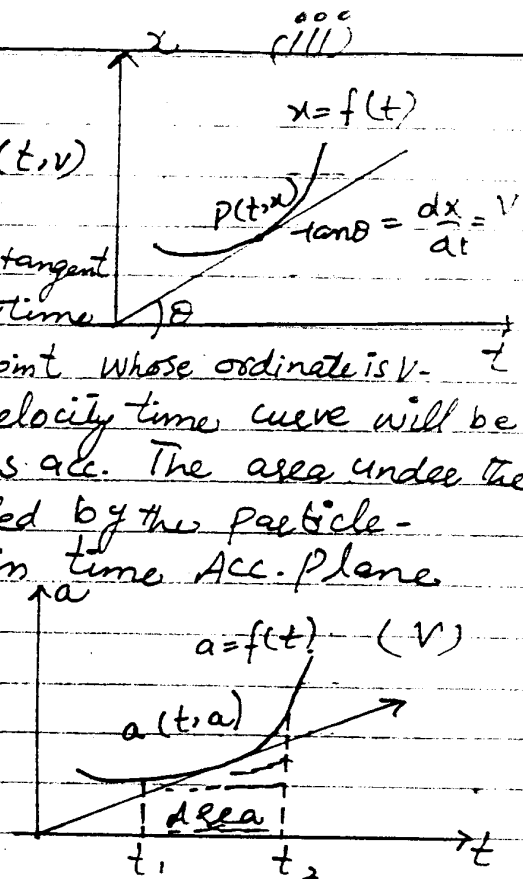 x (iii)
x=f(t)
(t,v)
P(t,x)
tanθ = dx/dt = V
tangent
time θ
t
oint whose ordinate is v-
elocity time curve will be
s acc. The area under the
ed by the particle-
in time Acc. Plane
a
a=f(t) (V)
a (t,a)
Area
t
t₁ t₂